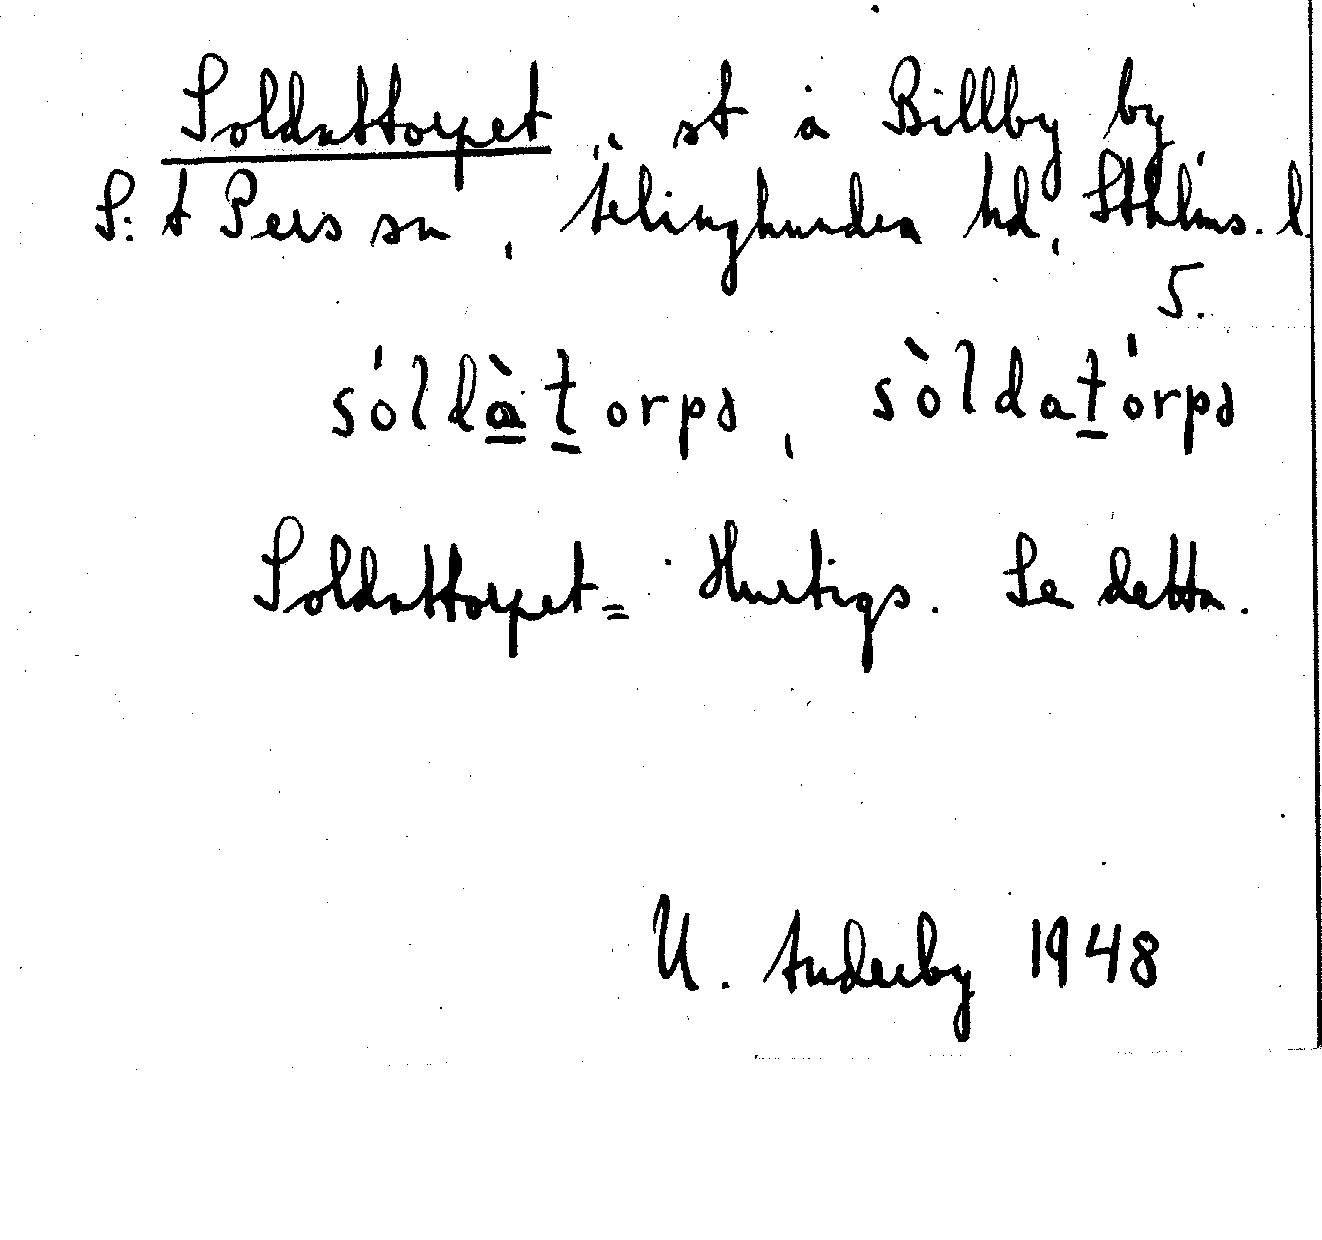 Soldattorpet, st å Billby by
S:t Pers sn, Ärlinghundra hd, Sthlms. l.
5.
sóldàtorpə, sòldatórpə
Soldattorpet = Hurtigs. Se detta.
U. 1948